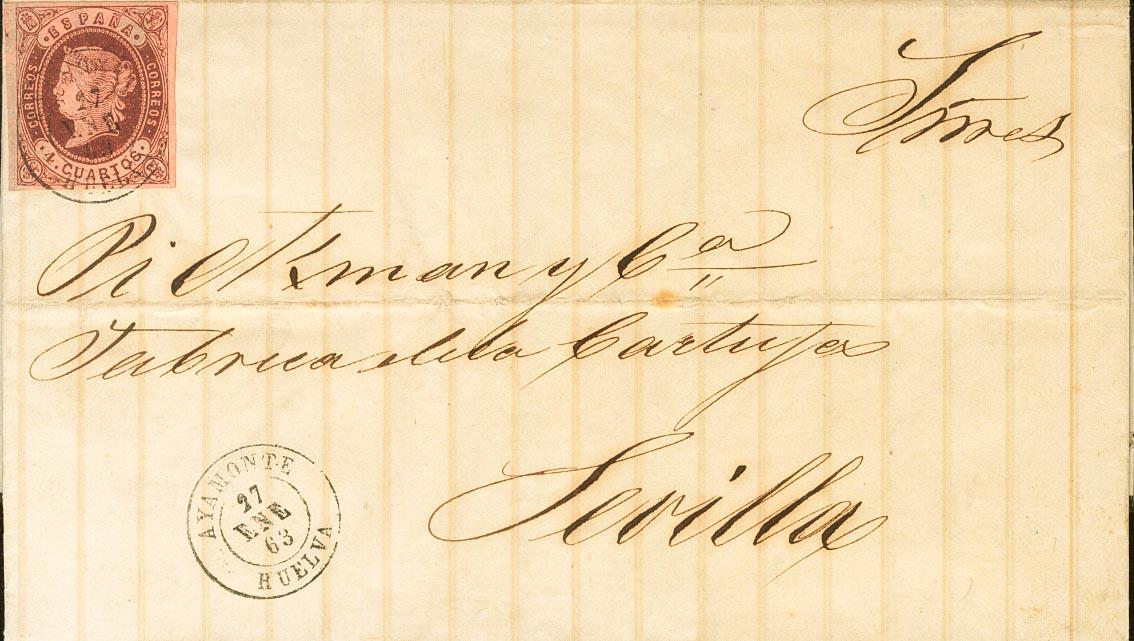 ESPAÑA
CORREOS CORREOS
4. CUARTOS.
27
ENE
HUELVA
Sñres
Pickman y Cª
Fabrica de la Cartuja
Sevilla
AYAMONTE
27
ENE
63
HUELVA